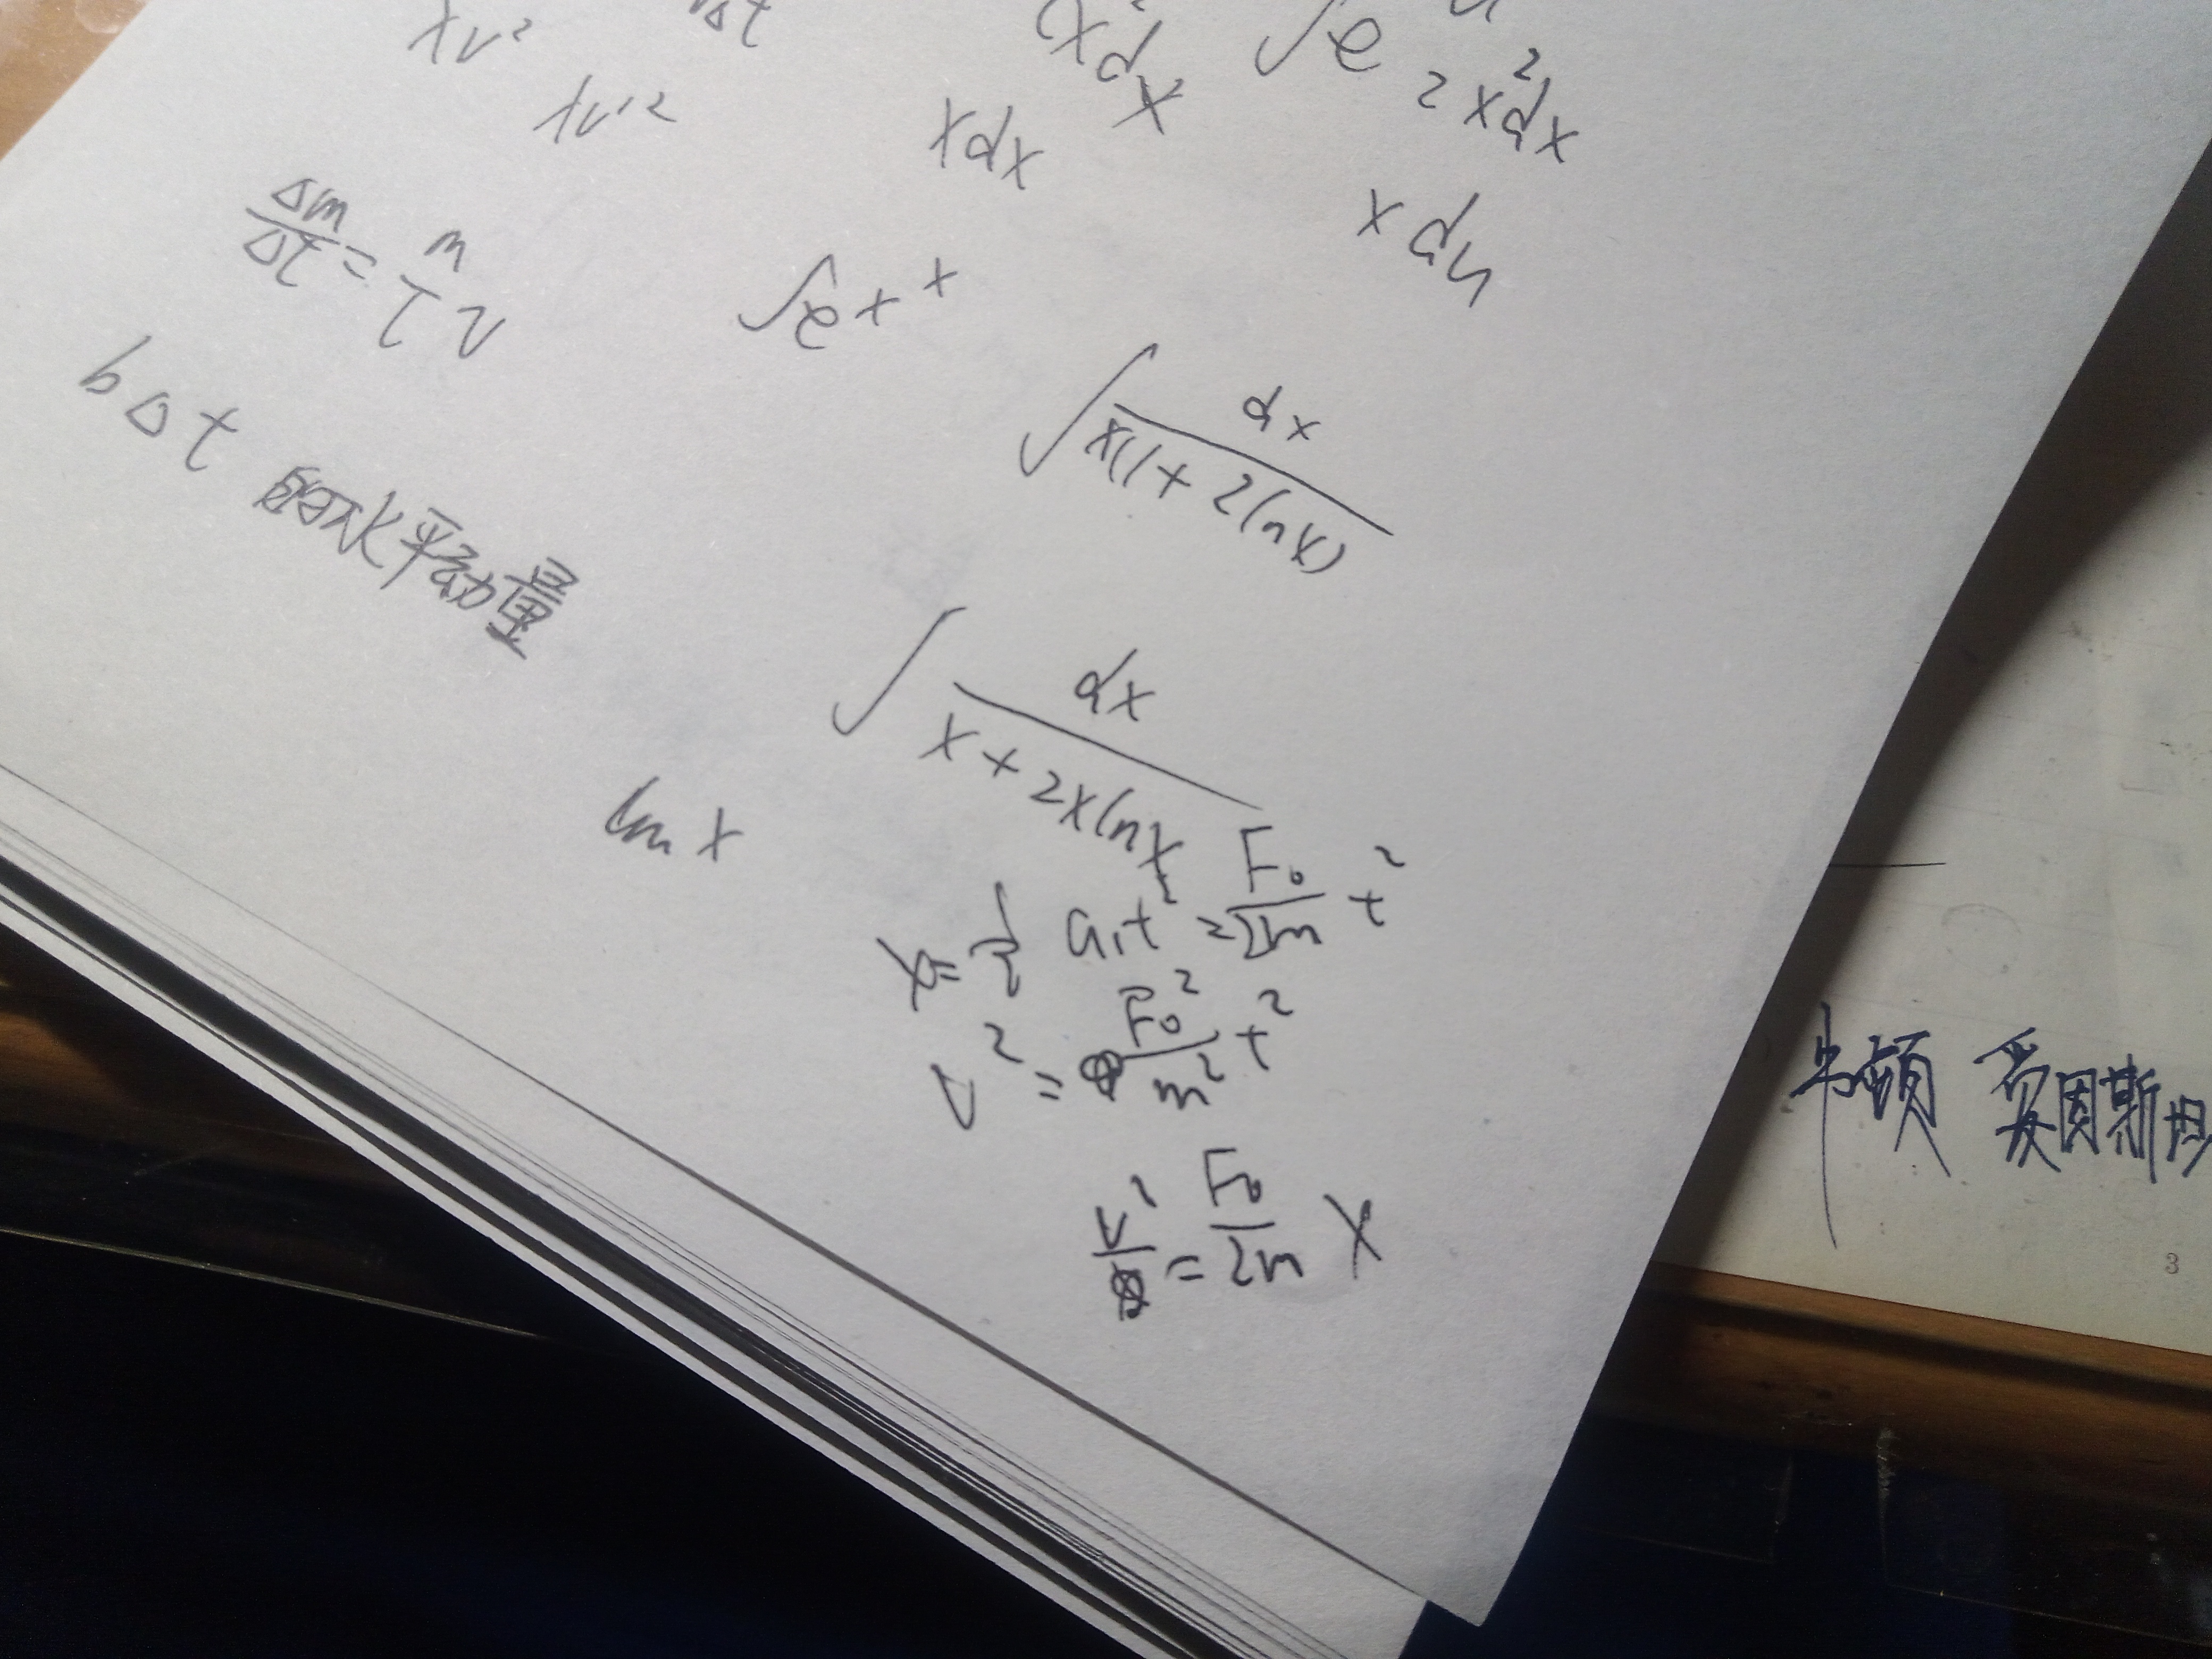 λv² Δt x²dx ∫e
λv'² xdx 2x²dx
xdu
Δm/Δt = m/l v
∫e x x
bΔt 的水平动量
∫ dx/x(1+2lnx)
∫ dx/x+2xlnx
ln x
x= 1/2 a₁t² = F₀/2m t²
v² = F₀²/m² t²
v²/2 = F₀/2m x
牛顿 爱因斯坦
3